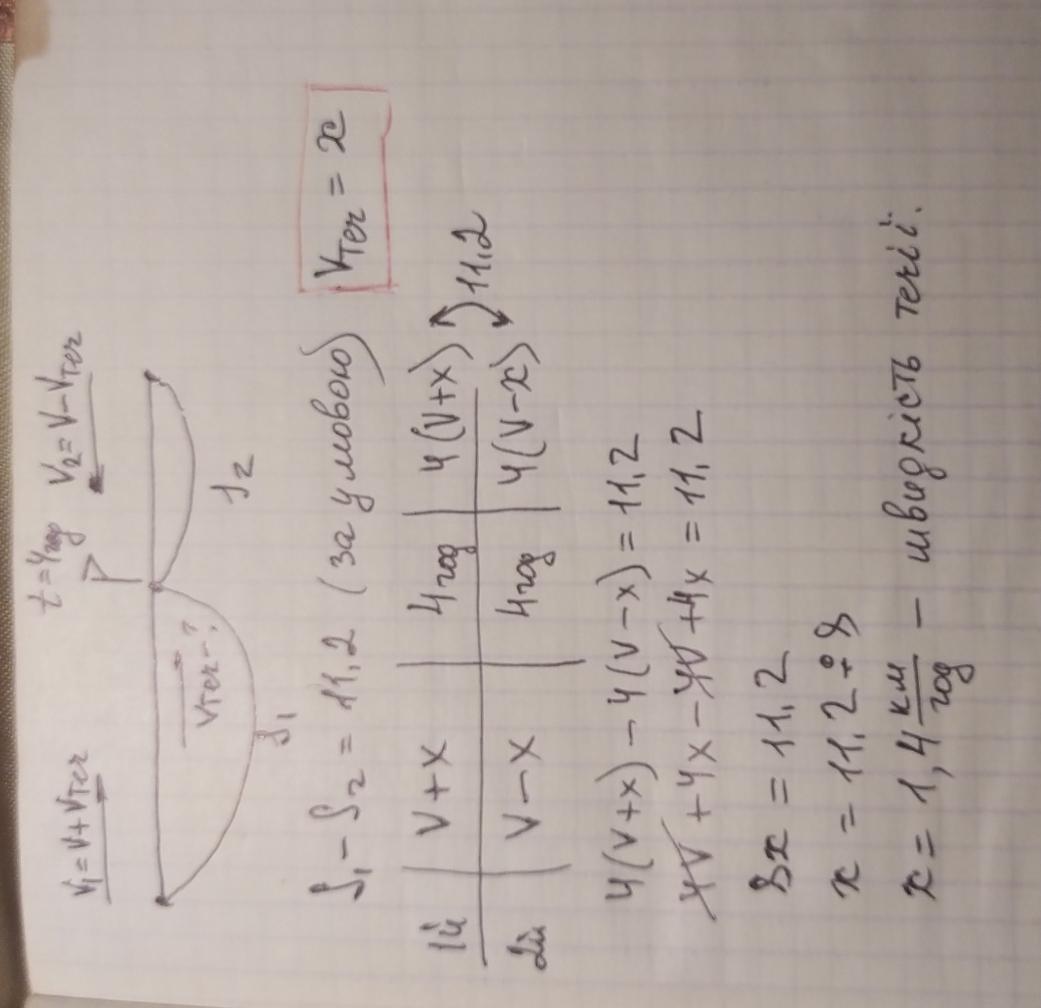 V₁ = V + Vтеч
t = 4год
V₂ = V - Vтеч
Vтеч - ?
S₁
S₂
S₁ - S₂ = 11,2 (за умовою)
Vтеч = x
1й | V + x | 4год | 4(V+x)
11,2
2й | V - x | 4год | 4(V-x)
4(V+x) - 4(V-x) = 11,2
4V + 4x - 4V + 4x = 11,2
8x = 11,2
x = 11,2 ÷ 8
x = 1,4 км/год - швидкість течії.